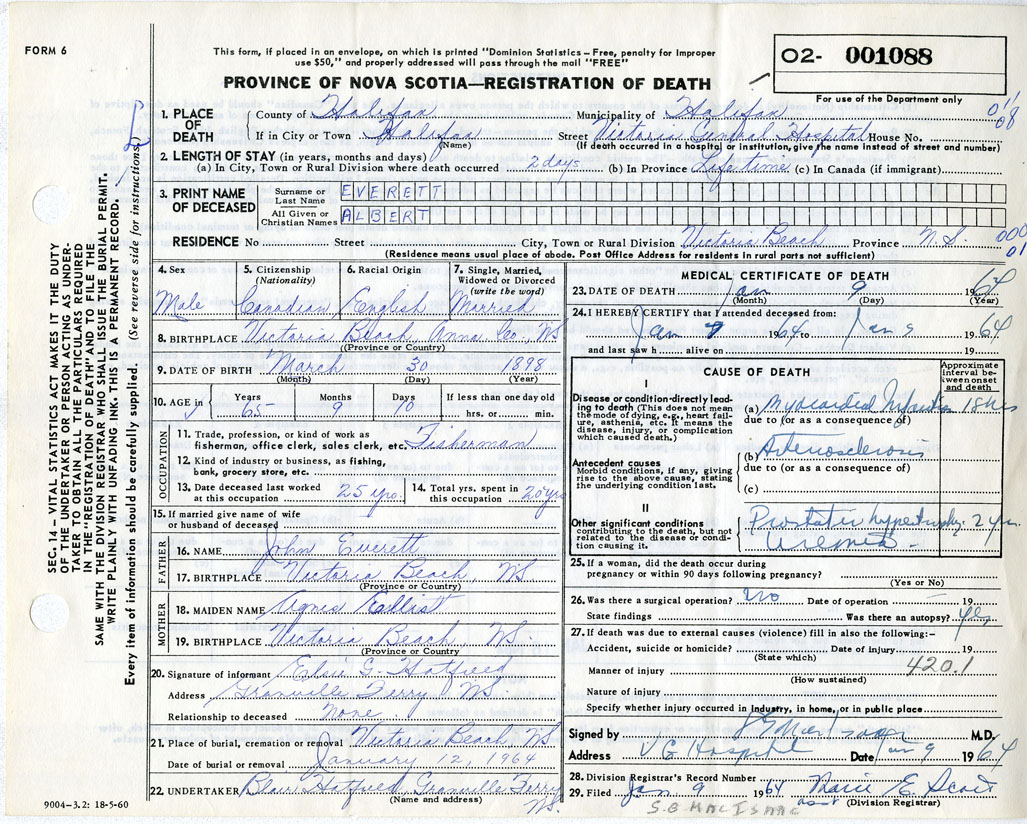 FORM 6
This form, if placed in an envelope, on which is printed "Dominion Statistics – Free, penalty for improper
use $50," and properly addressed will pass through the mail "FREE"
PROVINCE OF NOVA SCOTIA—REGISTRATION OF DEATH
O2- 001088
For use of the Department only
1. PLACE OF DEATH
County of Halifax Municipality of Halifax
If in City or Town Halifax Street Victoria General Hospital House No.
(Name) (If death occurred in a hospital or institution, give the name instead of street and number)
2. LENGTH OF STAY (in years, months and days)
(a) In City, Town or Rural Division where death occurred 2 days (b) In Province Life time (c) In Canada (if immigrant)
3. PRINT NAME OF DECEASED
Surname or Last Name EVERETT
All Given or Christian Names ALBERT
RESIDENCE No Street City, Town or Rural Division Victoria Beach Province N.S.
(Residence means usual place of abode. Post Office Address for residents in rural parts not sufficient)
000
01
4. Sex Male
5. Citizenship (Nationality) Canadian
6. Racial Origin English
7. Single, Married, Widowed or Divorced (write the word) Married
8. BIRTHPLACE Victoria Beach Anna Co., NS
(Province or Country)
9. DATE OF BIRTH March 30 1898
(Month) (Day) (Year)
10. AGE in Years 65 Months 9 Days 10 If less than one day old hrs. or min.
OCCUPATION
11. Trade, profession, or kind of work as
fisherman, office clerk, sales clerk, etc. Fisherman
12. Kind of industry or business, as fishing,
bank, grocery store, etc.
13. Date deceased last worked
at this occupation 25 yrs.
14. Total yrs. spent in
this occupation 20 yrs
15. If married give name of wife
or husband of deceased
FATHER
16. NAME John Everett
17. BIRTHPLACE Victoria Beach NS
(Province or Country)
MOTHER
18. MAIDEN NAME Agnes
19. BIRTHPLACE Victoria Beach NS.
(Province or Country
20. Signature of informant G. Hatfield
Address Granville Ferry NS.
Relationship to deceased None.
21. Place of burial, cremation or removal Victoria Beach, NS
Date of burial or removal January 12, 1964
22. UNDERTAKER Blair Hatfield Granville Ferry
NS.
(Name and address)
9004-3.2: 18-5-60
MEDICAL CERTIFICATE OF DEATH
23. DATE OF DEATH Jan 9 1964
(Month) (Day) (Year)
24. I HEREBY CERTIFY that I attended deceased from:
Jan 7 1964 to Jan 9 1964
and last saw h alive on 19
CAUSE OF DEATH
Approximate interval between onset and death
I
Disease or condition directly leading to death (This does not mean the mode of dying, e.g., heart failure, asthenia, etc. It means the disease, injury, or complication which caused death.)
(a) Myocardial Infarction 18 hrs
due to (or as a consequence of)
Antecedent causes
Morbid conditions, if any, giving rise to the above cause, stating the underlying condition last.
(b) Arteriosclerosis
due to (or as a consequence of)
(c)
II
Other significant conditions
contributing to the death, but not related to the disease or condition causing it.
Prostatic hypertrophy. 2 yrs.
Uremia -
25. If a woman, did the death occur during
pregnancy or within 90 days following pregnancy?
(Yes or No)
26. Was there a surgical operation? No Date of operation – 19
State findings Was there an autopsy? Yes
27. If death was due to external causes (violence) fill in also the following:–
Accident, suicide or homicide? Date of injury 19
(State which)
Manner of injury 420.1
(How sustained)
Nature of injury
Specify whether injury occurred in industry, in home, or in public place
Signed by M.D.
Address V G Hospital Date Jan 9 1964
28. Division Registrar's Record Number
29. Filed Jan 9 1964 Marie E Scott
asst (Division Registrar)
S.G MACISAAC
SEC. 14 – VITAL STATISTICS ACT MAKES IT THE DUTY
OF THE UNDERTAKER OR PERSON ACTING AS UNDER-
TAKER TO OBTAIN ALL THE PARTICULARS REQUIRED
IN THE "REGISTRATION OF DEATH" AND TO FILE THE
SAME WITH THE DIVISION REGISTRAR WHO SHALL ISSUE THE BURIAL PERMIT.
WRITE PLAINLY WITH UNFADING INK. THIS IS A PERMANENT RECORD.
Every item of information should be carefully supplied. (See reverse side for instructions)